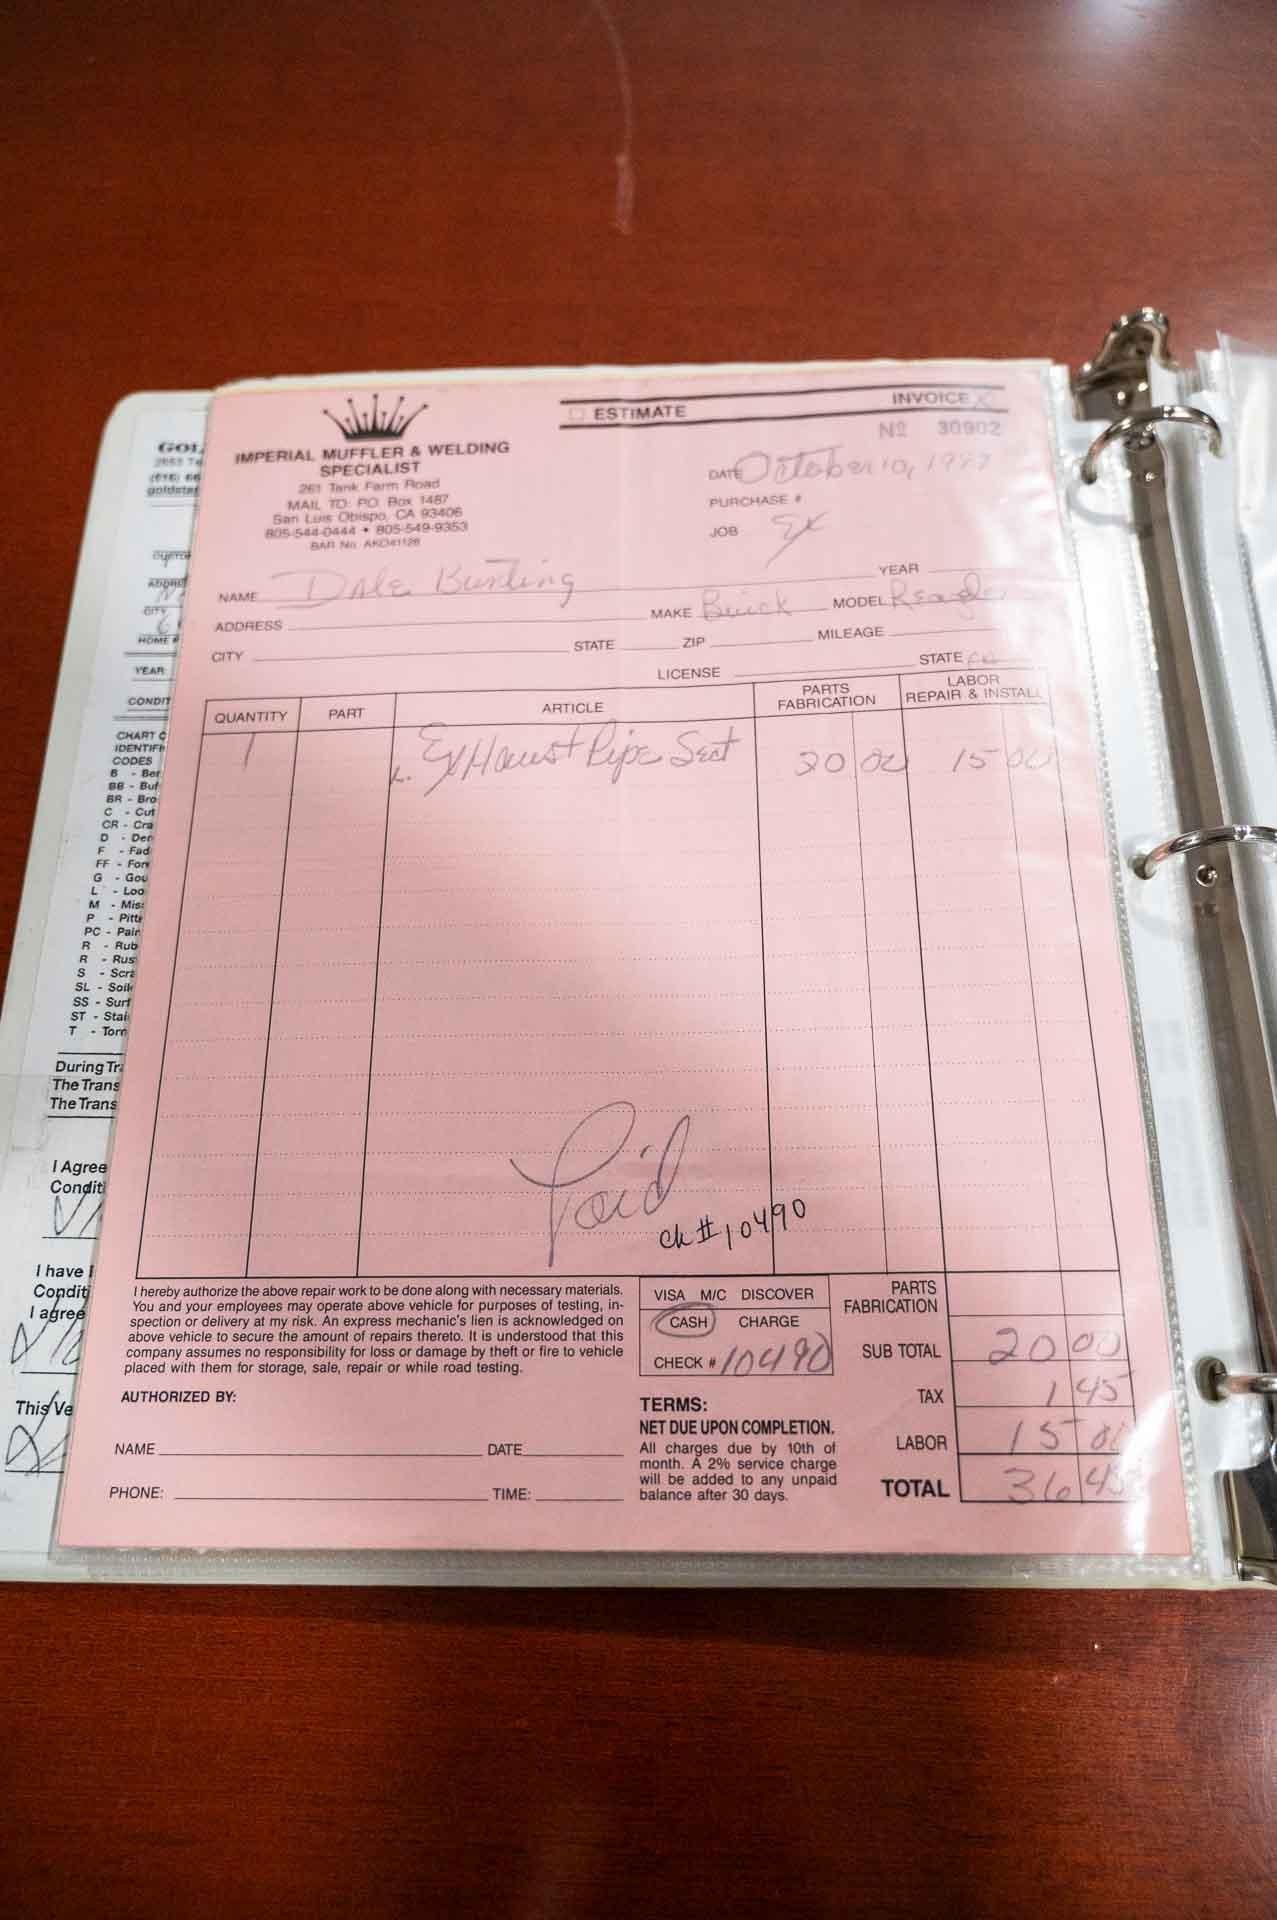 GOL
(616) 66
goldstar
ADDRE
CITY
HOME #
YEAR
CONDIT
CHART O
IDENTIFI
CODES
B - Ber
BB - Buf
BR - Bro
C - Cut
CR - Cra
D - Den
F - Fad
FF - Fore
G - Gou
L - Loo
M - Miss
P - Pitt
PC - Pain
R - Rub
R - Rus
S - Scra
SL - Soile
SS - Surf
ST - Stai
T - Torn
During Tra
The Trans
The Trans
I Agree
Conditi
I have
Condit
I agree
This Ve
ESTIMATE
INVOICE X
Nº 30902
IMPERIAL MUFFLER & WELDING
SPECIALIST
261 Tank Farm Road
MAIL TO: P.O. Box 1487
San Luis Obispo, CA 93406
805-544-0444 • 805-549-9353
BAR No. AK041126
DATE October 10, 1997
PURCHASE #
JOB Ex
NAME Dale Bunting YEAR
ADDRESS MAKE Buick MODEL
CITY STATE ZIP MILEAGE
LICENSE STATE
QUANTITY PART ARTICLE PARTS FABRICATION LABOR REPAIR & INSTALL
1 Exhaust Pipe Sect 20 00 15 00
Paid
ck # 10490
I hereby authorize the above repair work to be done along with necessary materials.
You and your employees may operate above vehicle for purposes of testing, in-
spection or delivery at my risk. An express mechanic's lien is acknowledged on
above vehicle to secure the amount of repairs thereto. It is understood that this
company assumes no responsibility for loss or damage by theft or fire to vehicle
placed with them for storage, sale, repair or while road testing.
AUTHORIZED BY:
NAME DATE
PHONE: TIME:
VISA M/C DISCOVER
CASH CHARGE
CHECK # 10490
TERMS:
NET DUE UPON COMPLETION.
All charges due by 10th of
month. A 2% service charge
will be added to any unpaid
balance after 30 days.
PARTS
FABRICATION
SUB TOTAL 20 00
TAX 1 45
LABOR 15 00
TOTAL 36 45